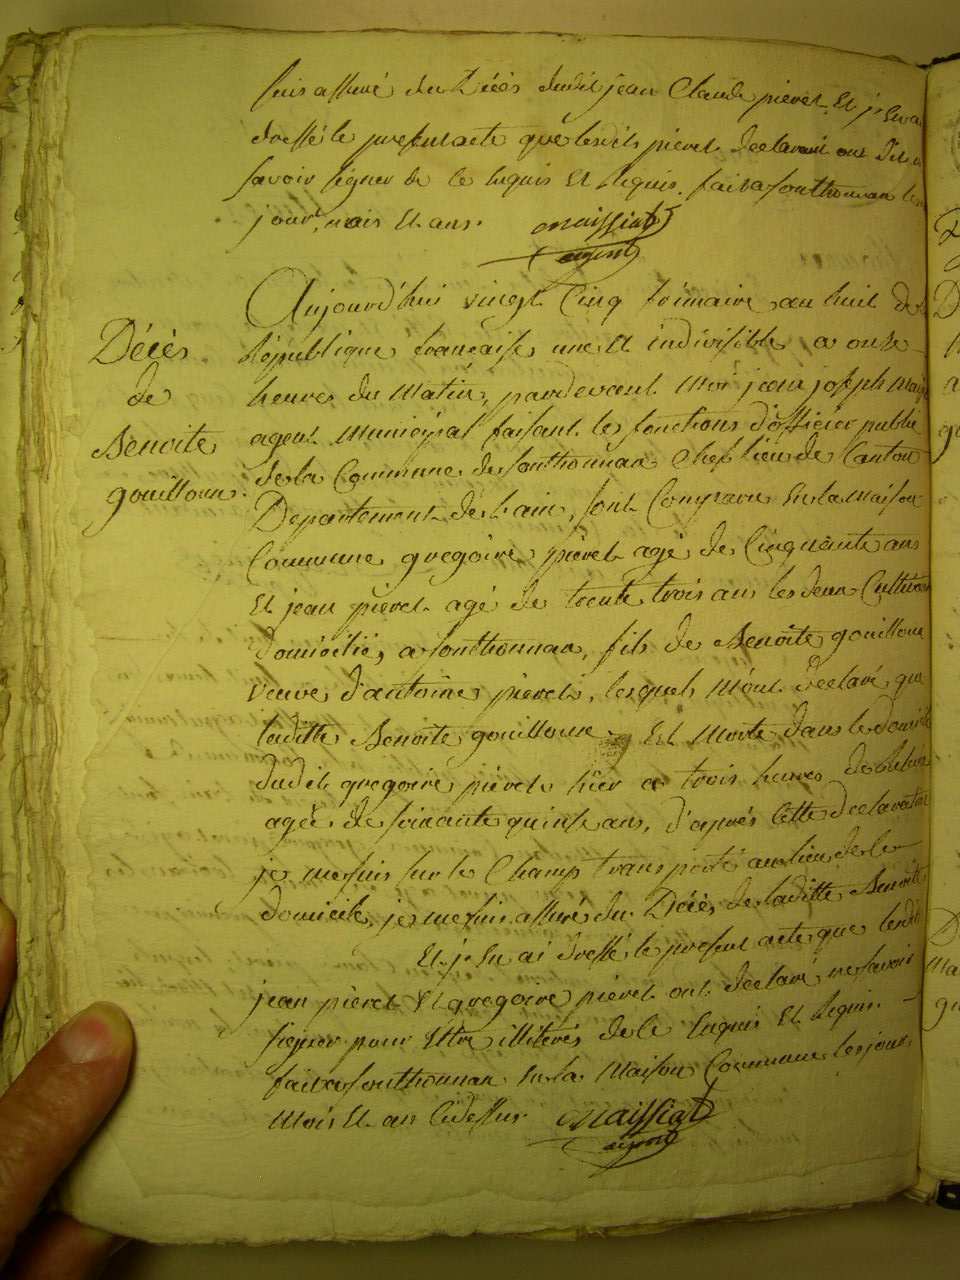 suis assuré du Décès dudit jean Claude pieret Et j'En ai
dressé le present acte que lesdits pieret declarant ont Dit ne
savoir signer de ce Enquis Et Requis. fait a sonthonnax les
jour, mois Et ans. Maissiat
agent
Décès
de
Benoite
gouilloux
Aujourd'hui vingt Cinq frimaire an huit de la
République francaise une Et indivisible a onze
heures du Matin, pardevant Moi jean joseph Maissiat
agent Municipal faisant les fonctions d'officier public
de la Commune de sonthonnax Chef lieu de Canton
Departement de L'ain, sont Comparu En la Maison
Commune gregoire pieret agé de Cinquante ans
Et jean pieret agé de trente trois ans les deux Cultivateurs
domiciliés a sonthonnax, fils de Benoite gouilloux
veuve d'antoine pieret, lesquels M'ont declaré que
laditte Benoite gouilloux Est Morte dans le domicile
dudit gregoire pieret hier a trois heures de Relevée
agée de soixante quinze ans, d'après Cette declaration
je me suis sur le Champ transporté au lieu de ce
domicile, je me suis assuré du Décès de laditte Benoite
Et j'En ai dressé le present acte que lesdits
jean pieret Et gregoire pieret ont declaré ne savoir
signer pour Etre illiterés de ce Enquis Et Requis.
fait a sonthonnax En la Maison Commune les jour
Mois Et an Cidessus Maissiat
agent